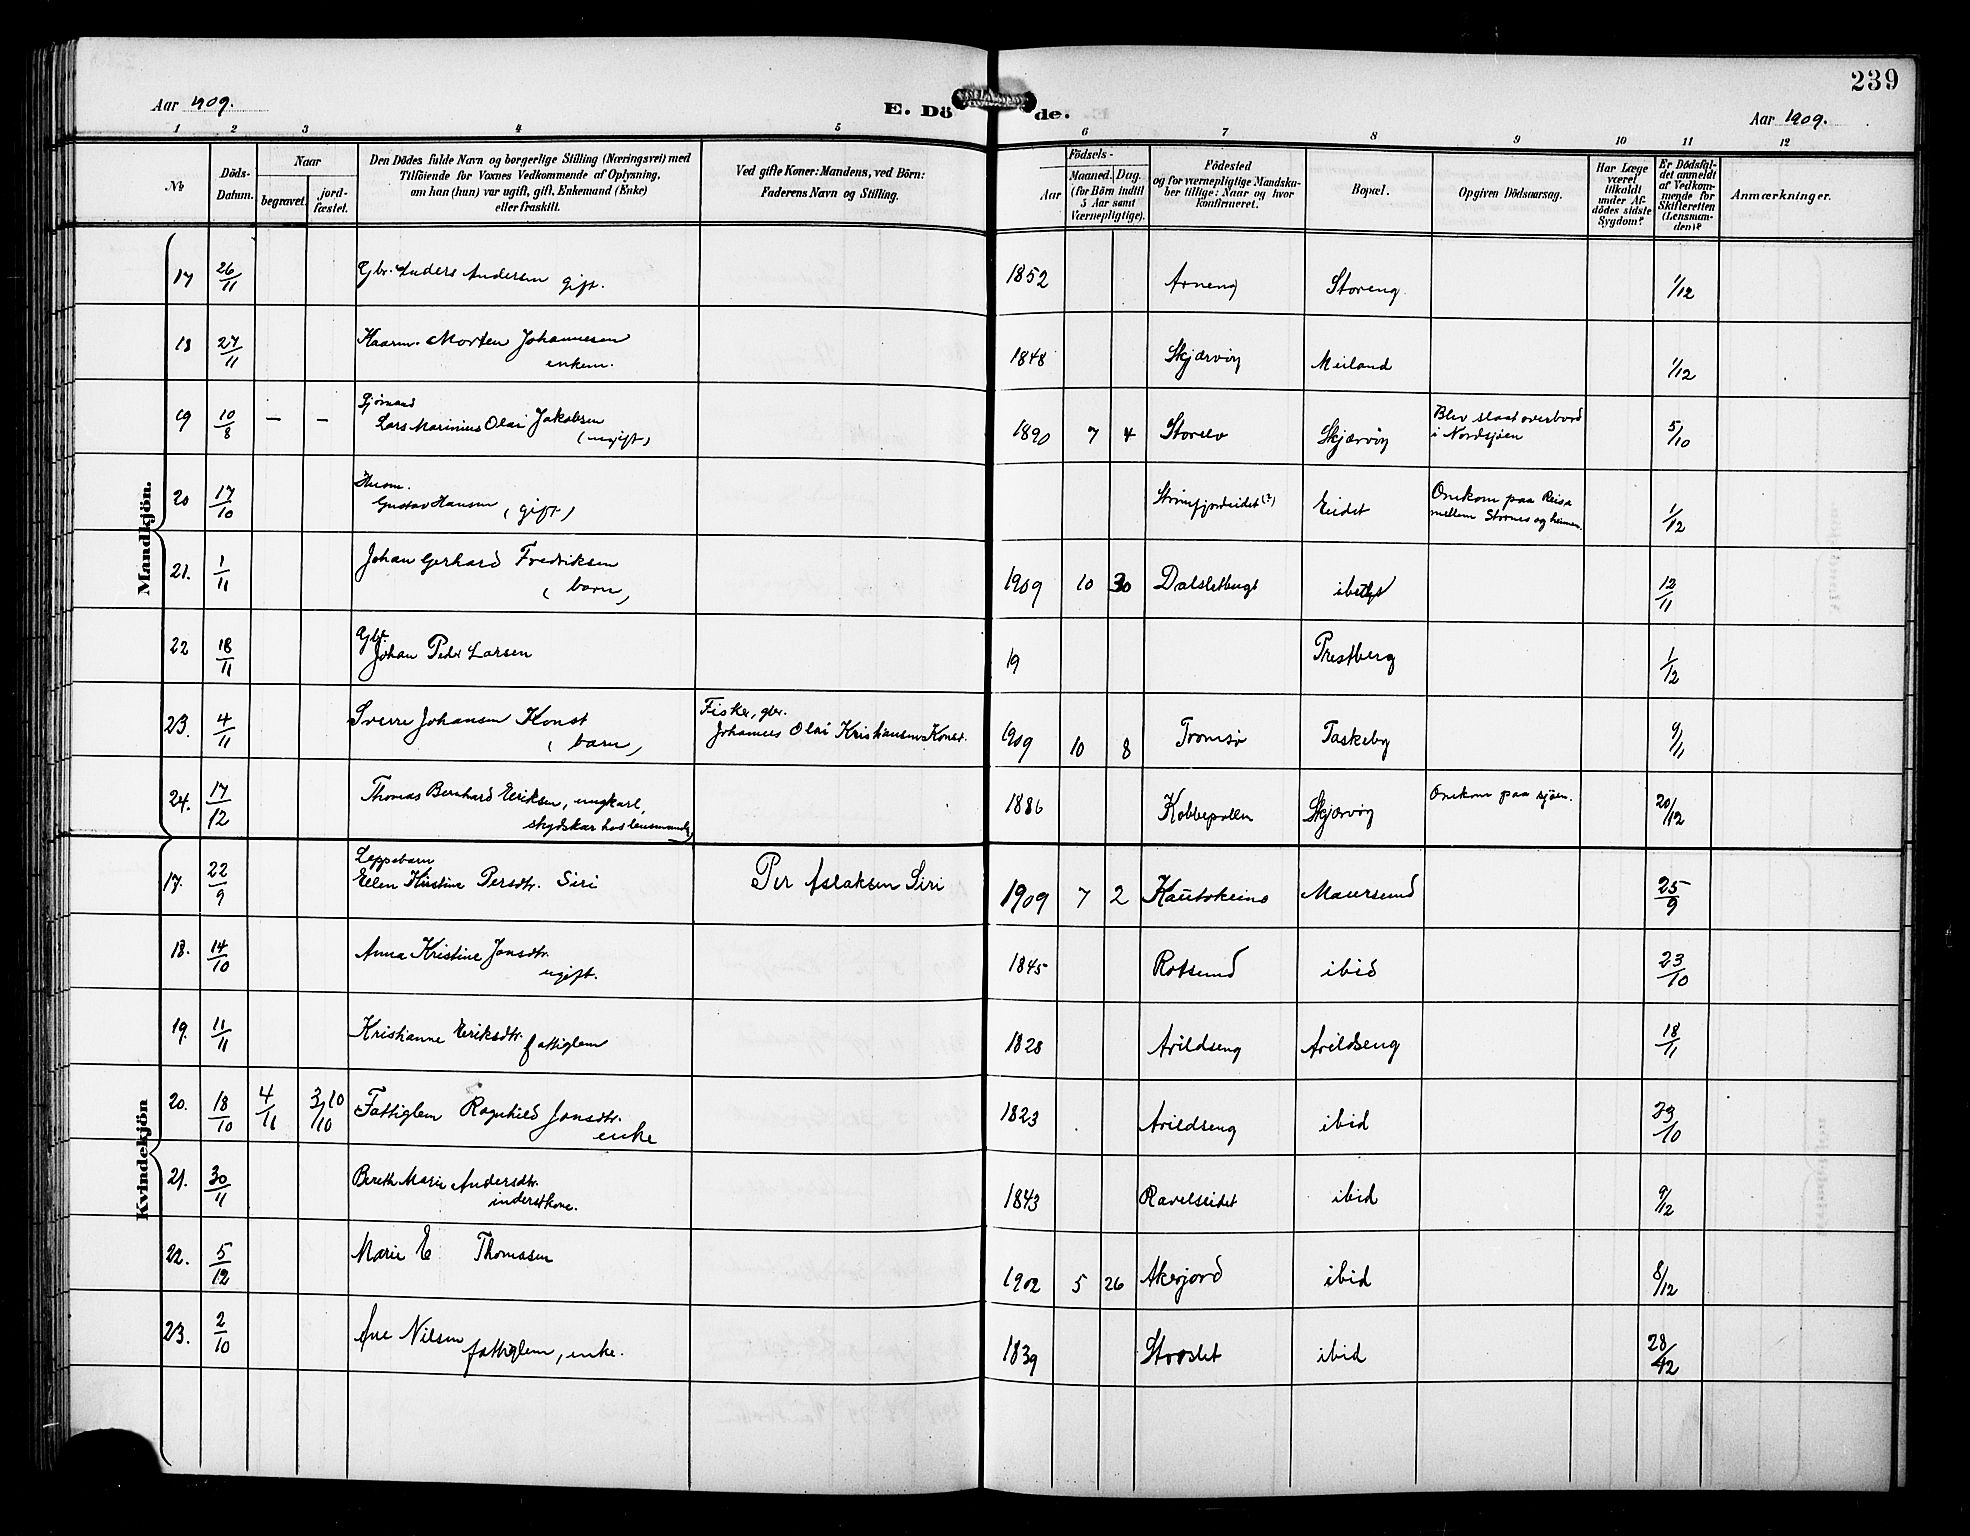 239
Aar 1909.
E. Dö de.
Aar 1909.
1 2 3 4 5 6 7 8 9 10 11 12
No
Döds-
Datum.
Naar
begravet.
jord-
fæstet.
Den Dödes fulde Navn og borgerlige Stilling (Næringsvei) med
Tilföiende for Voxnes Vedkommende af Oplysning,
om han (hun) var ugift, gift, Enkemand (Enke)
eller fraskilt.
Ved gifte Koner: Mandens, ved Börn:
Faderens Navn og Stilling.
Födsels-
Aar
Maaned. Dag.
(for Börn indtil
5 Aar samt
Værnepligtige).
Födested
og for værnepligtige Mandska-
ber tillige: Naar og hvor
konfirmeret.
Bopæl.
Opgiven Dödsaarsag.
Har Læge
været
tilkaldt
under Af-
dödes sidste
Sygdom?
Er Dödsfal-
det anmeldt
af Vedkom-
mende for
Skifteretten
(Lensman-
den)?
Anmærkninger.
Mandkjön.
17 26/11 Gbr. Anders Andersen gift. 1852 Arneng Storeng 1/12
18 27/11 Kaarm. Morten Johannesen enkem. 1848 Skjærvöy Meiland 1/12
19 10/8 — — Sjömand
Lars Marinius Olai Jakobsen (ugift) 1890 7 4 Storelv Skjærvöy Blev slaat overbord
i Nordsjöen 5/10
20 17/10 Husm.
Gustav Hansen (gift) Straumfjordeidet (?) Eidet Omkom paa Reisa
mellem Stornes og heimen. 1/12
21. 1/11 Johan Gerhard Fredriksen
(barn) 1909 10 30 Dalsletbugt 12/11
22 18/11 Gbr.
Johan Peder Larsen 19 Prestberg 1/12
23. 4/11 Sverre Johansen Konst
(barn) Fisker, gbr.
Johannes Olai Kristiansen Konst. 1909 10 8 Tromsö Taskeby 9/11
24. 17/12 Thomas Bernhard Eriksen, ungkarl,
skydskar hos lensmand 1886 Kobbepollen Skjærvöy Omkom paa sjöen. 20/12
Kvindekjön
17. 22/9 Lappebarn
Ellen Kirstine Persdtr. Siri Per Aslaksen Siri 1909 7 2 Kautokeino Maursund 25/9
18. 14/10 Anna Kristine Jonsdtr.
ugift. 1845 Rotsund ibid 23/10
19. 11/11 Kristianne Eriksdtr. fattiglem 1828 Arildseng Arildseng 18/11
20. 18/10 4/11 Fattiglem Ragnhild Jonsdtr.
enke 1823 Arildseng ibid 23/10
21. 30/11 Bereth Marie Andersdtr.
inderstkone. 1843 Ravelseidet ibid 9/12
22. 5/12 Marie E Thomasen 1902 5 26 Akefjord ibid 8/12
23. 2/10 Ane Nilsen
fattiglem, enke. 1839 Storslet ibid 28/12